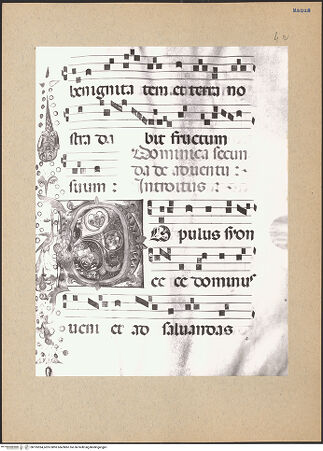 benignita tem. et terra no
stra da bit fructum
Dominica secun
da de adventu :
suum : Introitus :
Populus syon
ec ce dominus
veni et ad salvandas